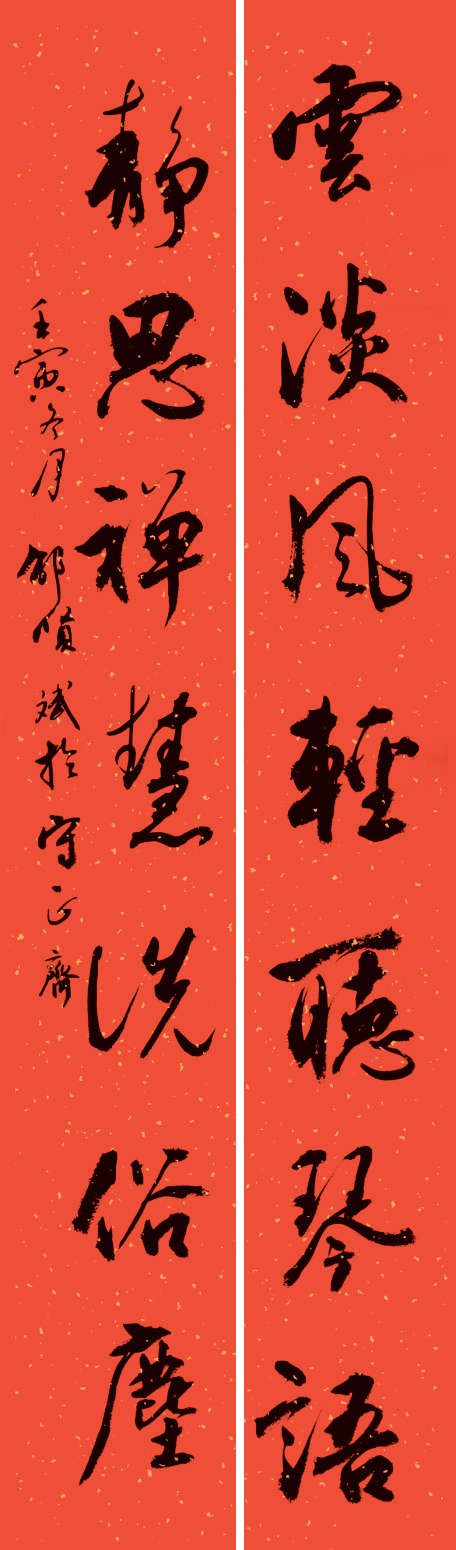 雲淡風輕聽琴語
靜思禪慧洗俗塵
壬寅冬月 邰噴斌於守正齋